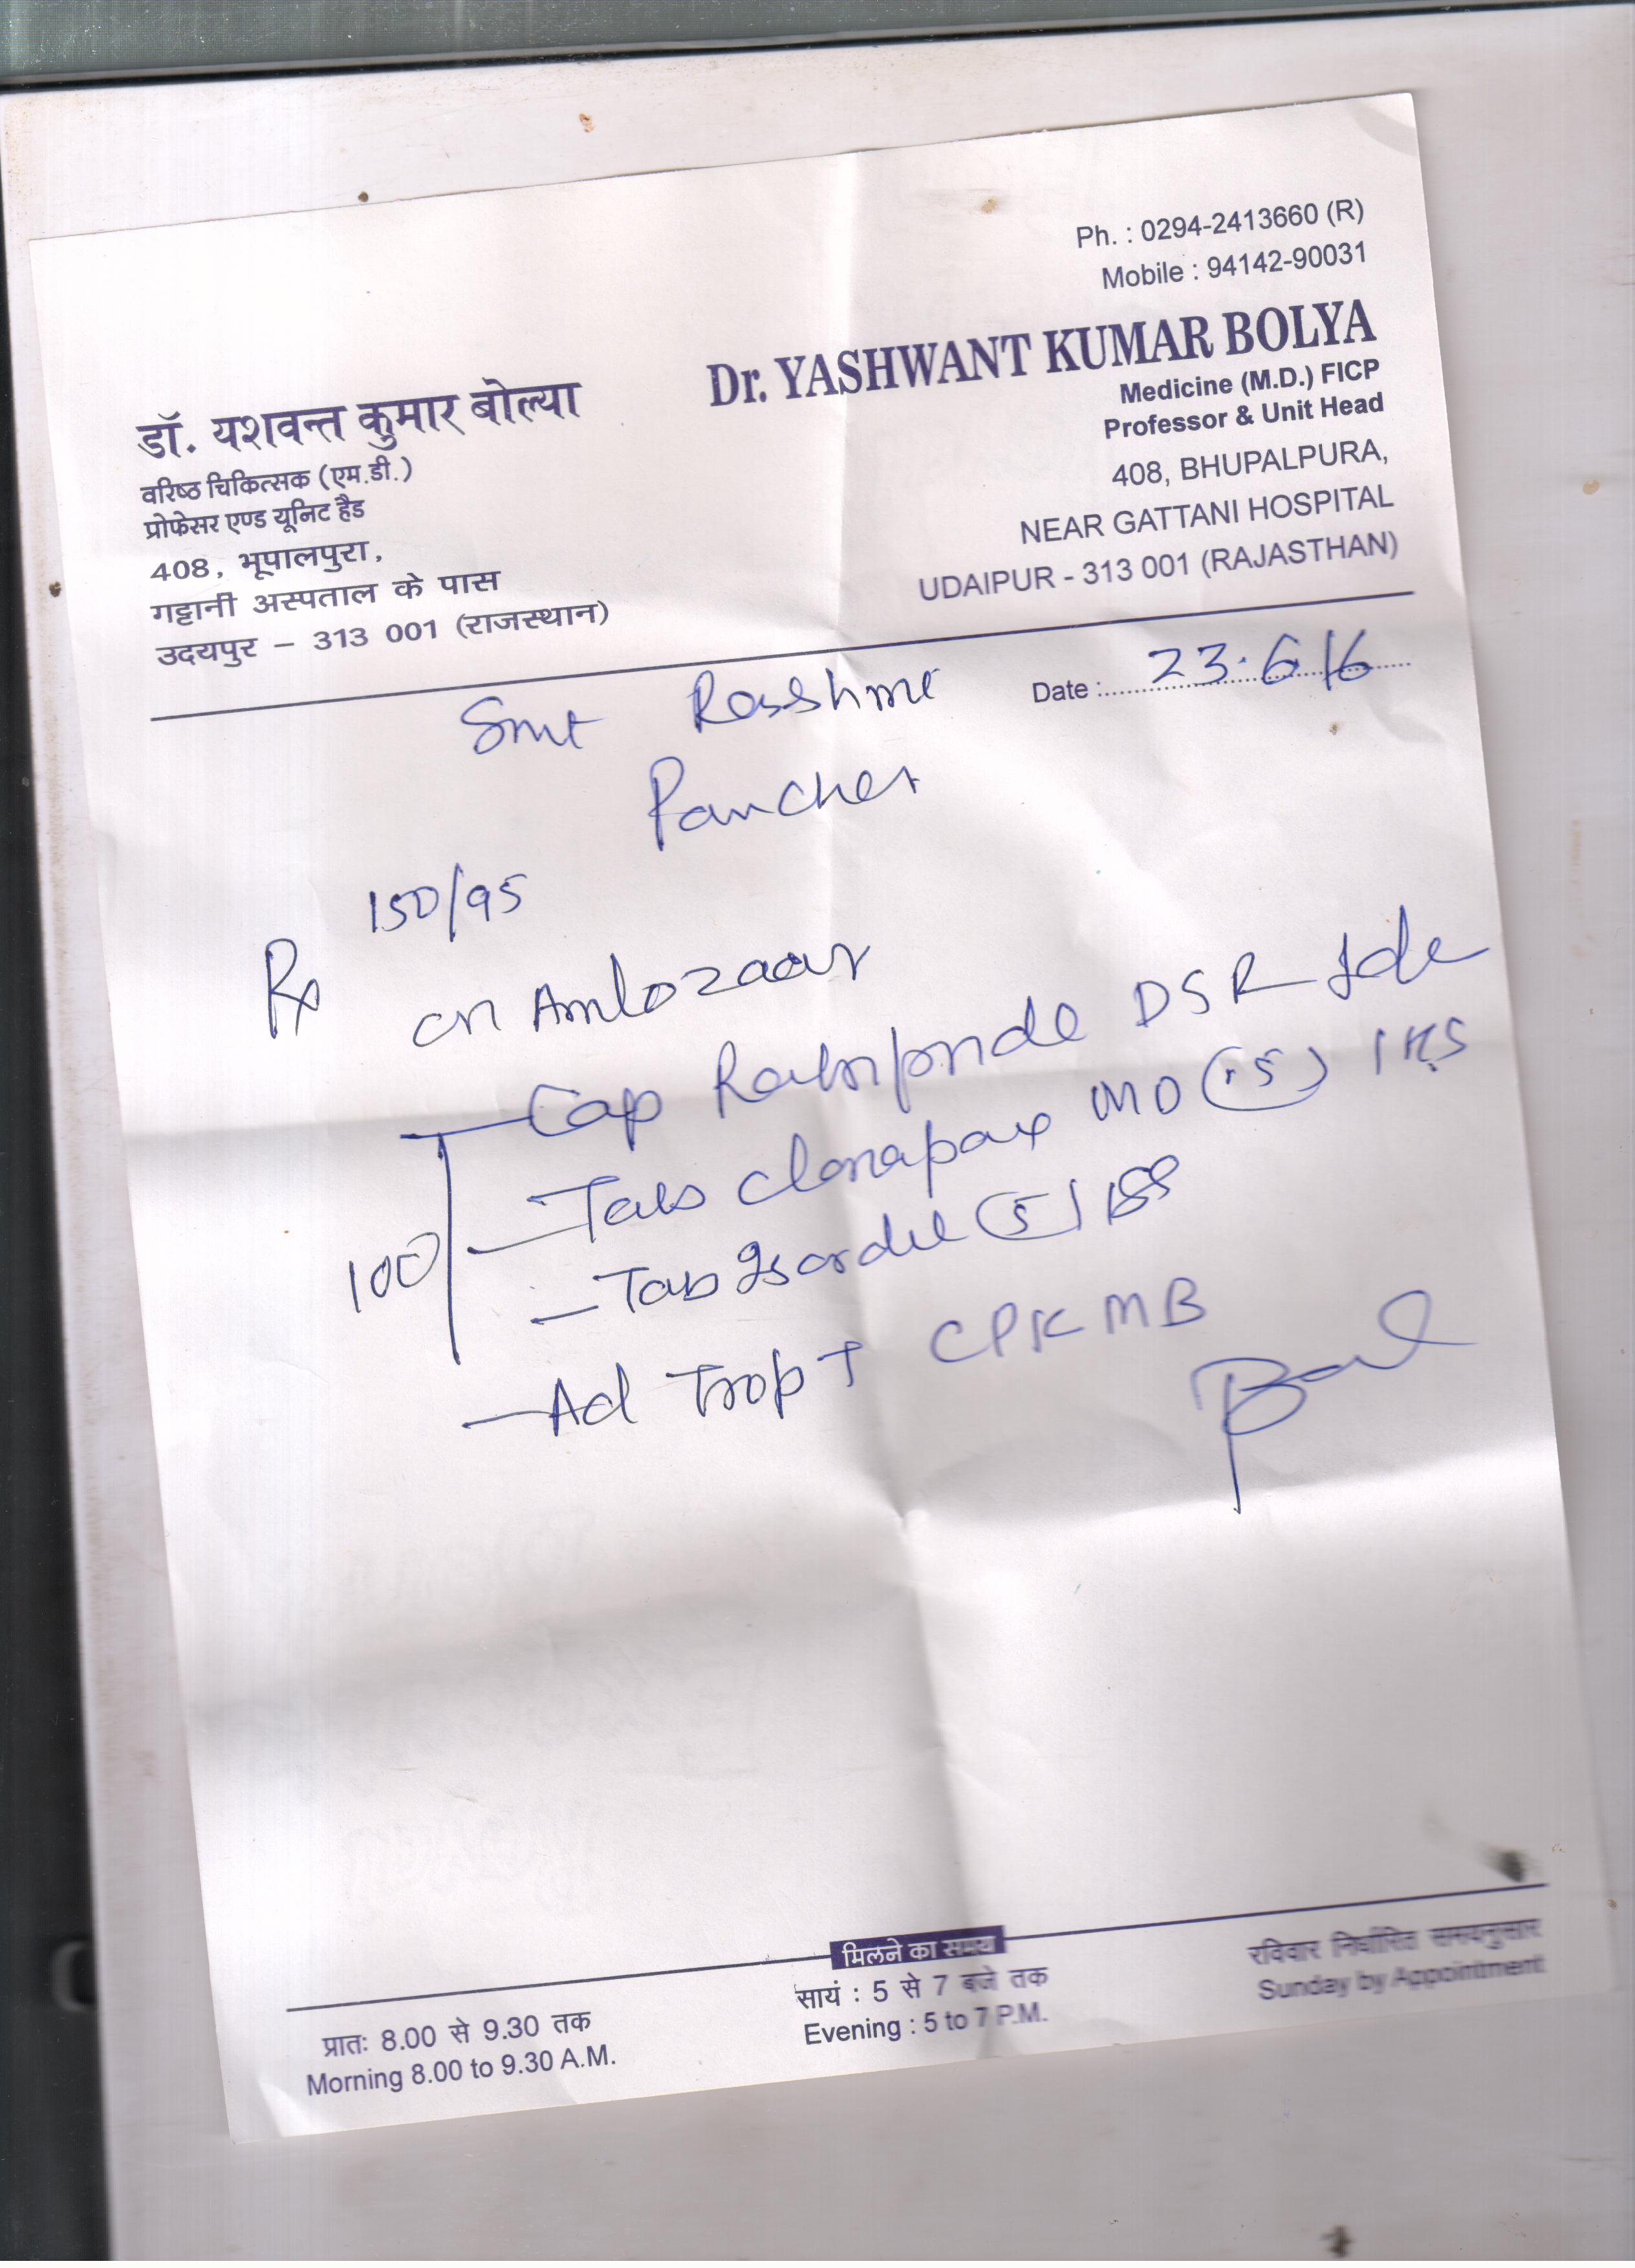 Ph. : 0294-2413660 (R)
Mobile : 94142-90031
डॉ. यशवन्त कुमार बोल्या
वरिष्ठ चिकित्सक (एम.डी.)
प्रोफेसर एण्ड यूनिट हैड
408, भूपालपुरा,
गट्टानी अस्पताल के पास
उदयपुर – 313 001 (राजस्थान)
Dr. YASHWANT KUMAR BOLYA
Medicine (M.D.) FICP
Professor & Unit Head
408, BHUPALPURA,
NEAR GATTANI HOSPITAL
UDAIPUR - 313 001 (RAJASTHAN)
Date : 23.6.16
Smt
150/95
Rx
on Amlozaar
Cap DSR
Tab MD (.5) 1 HS
100
Tab Isordil (5)
Ad Trop T CPK MB
मिलने का समय
प्रातः 8.00 से 9.30 तक
Morning 8.00 to 9.30 A.M.
सायं : 5 से 7 बजे तक
Evening : 5 to 7 P.M.
रविवार निर्धारित समयनुसार
Sunday by Appointment